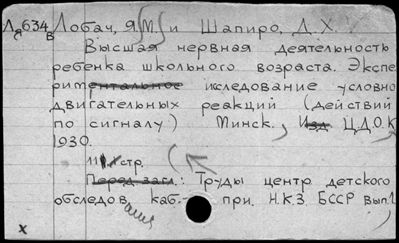 Ля634в Лобач, Я.М. и Шапиро, Д.Х.
Высшая нервная деятельность
ребенка школьного возраста. Экспе
риментальное иследование условно
двигательных реакций (действий
по сигналу) Минск, Изд ЦДОК
1930.
111 стр.
Перед загл.: Труды центр детского
обследования каб. при. Н.К.З. БССР вып.1
х